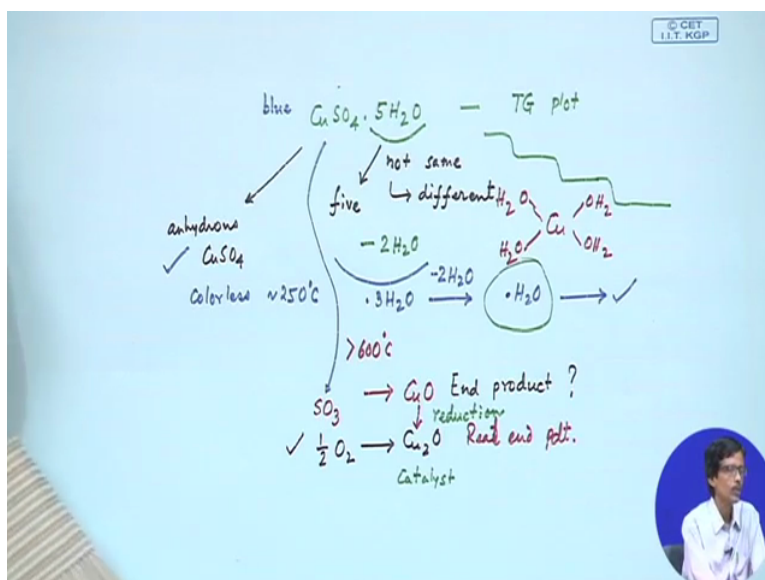 © CET
I.I.T. KGP
blue CuSO₄·5H₂O — TG plot
not same
five ↳ different
H₂O OH₂
Cu
H₂O OH₂
anhydrous
✓ CuSO₄
colorless ~250°C
-2H₂O
·3H₂O -2H₂O → ·H₂O → ✓
>600°C
SO₃ → CuO End product ?
↓ reduction
✓ ½ O₂ → Cu₂O Real end pdt.
Catalyst